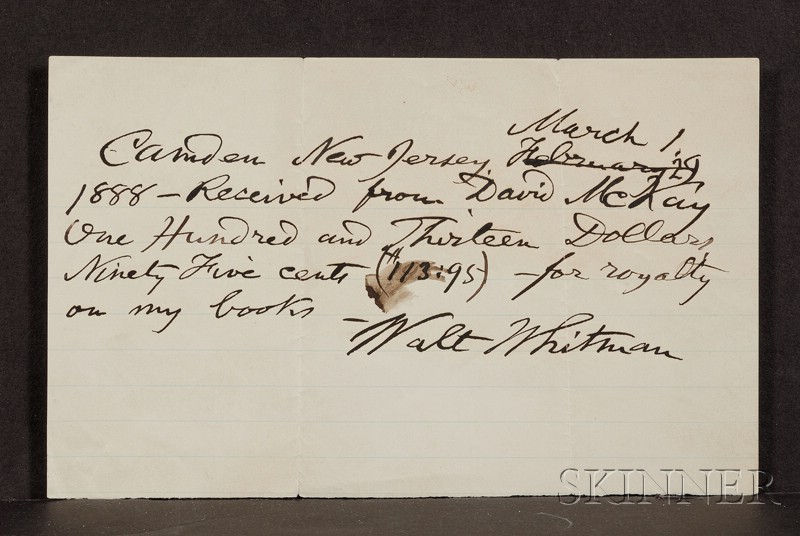 March 1,
Camden New Jersey, February 29
1888 – Received from David McKay
One Hundred and Thirteen Dollars,
Ninety Five cents ($113:95) – for royalty
on my books – Walt Whitman
SKINNER